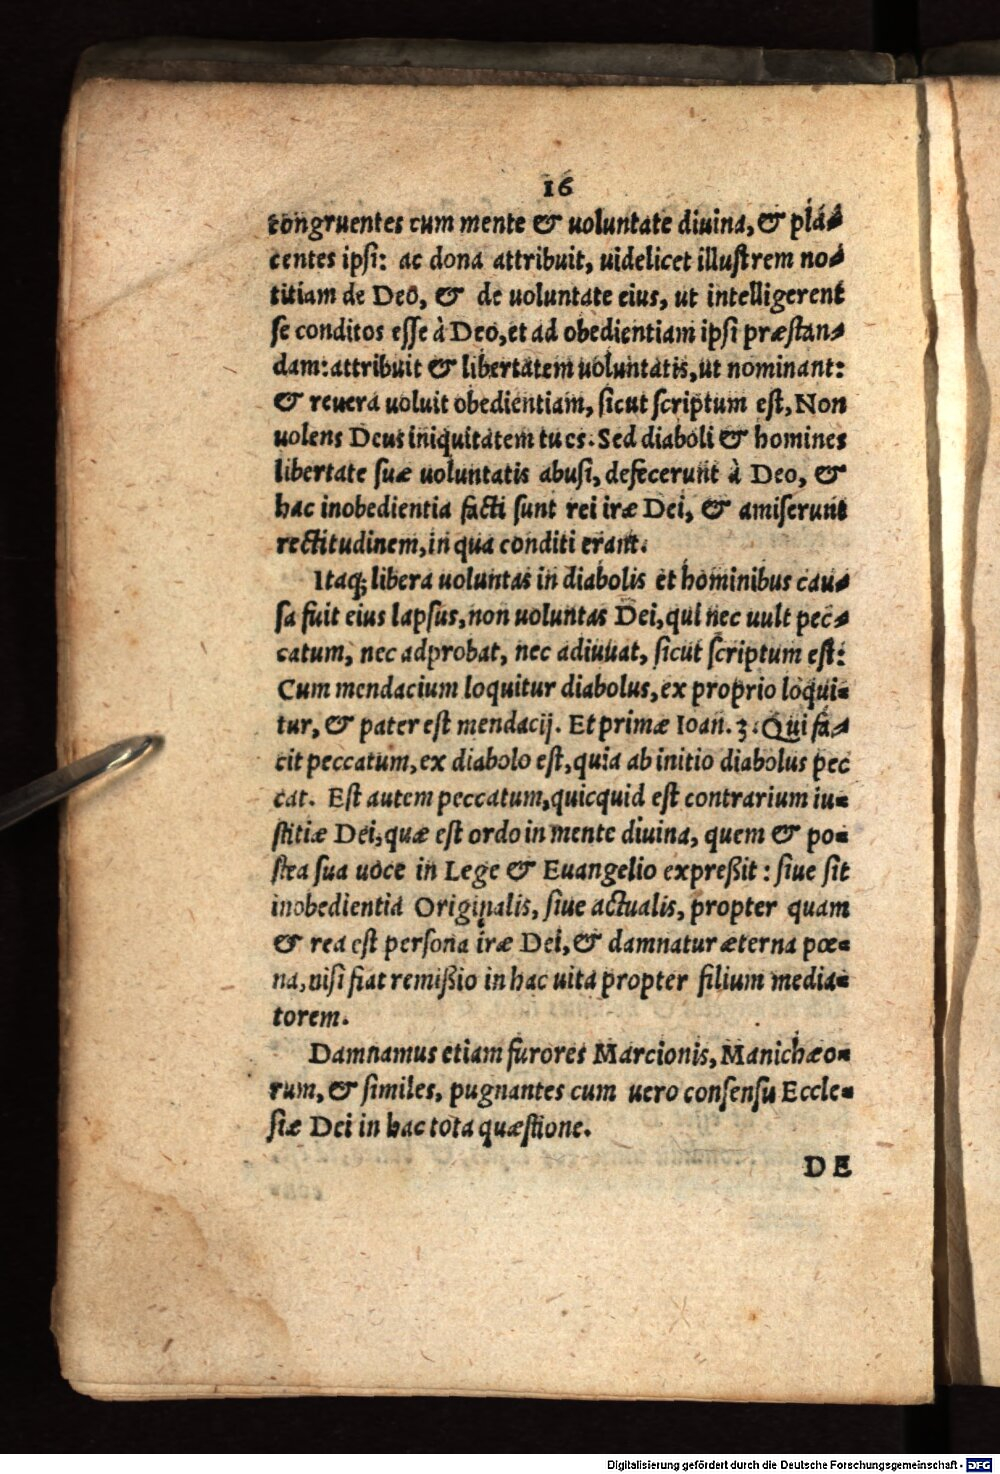 16
congruentes cum mente & uoluntate diuina, & pla-
centes ipsi: ac dona attribuit, uidelicet illustrem no-
titiam de Deo, & de uoluntate eius, ut intelligerent
se conditos esse à Deo, et ad obedientiam ipsi præstan-
dam: attribuit & libertatem uoluntatis, ut nominant:
& reuera uoluit obedientiam, sicut scriptum est, Non
uolens Deus iniquitatem tu es. Sed diaboli & homines
libertate suæ uoluntatis abusi, defecerunt à Deo, &
hac inobedientia facti sunt rei iræ Dei, & amiserunt
rectitudinem, in qua conditi erant.
Itaq; libera uoluntas in diabolis et hominibus cau-
sa fuit eius lapsus, non uoluntas Dei, qui nec uult pec-
catum, nec adprobat, nec adiuuat, sicut scriptum est:
Cum mendacium loquitur diabolus, ex proprio loqui-
tur, & pater est mendacij. Et primæ Ioan. 3. Qui fa-
cit peccatum, ex diabolo est, quia ab initio diabolus pec
cat. Est autem peccatum, quicquid est contrarium iu-
stitiæ Dei, quæ est ordo in mente diuina, quem & po-
stea sua uoce in Lege & Euangelio expreßit: siue sit
inobedientia Originalis, siue actualis, propter quam
& rea est persona iræ Dei, & damnatur æterna pœ-
na, nisi fiat remißio in hac uita propter filium media-
torem.
Damnamus etiam furores Marcionis, Manichæo-
rum, & similes, pugnantes cum uero consensu Eccle-
siæ Dei in hac tota quæstione.
DE
Digitalisierung gefördert durch die Deutsche Forschungsgemeinschaft - DFG